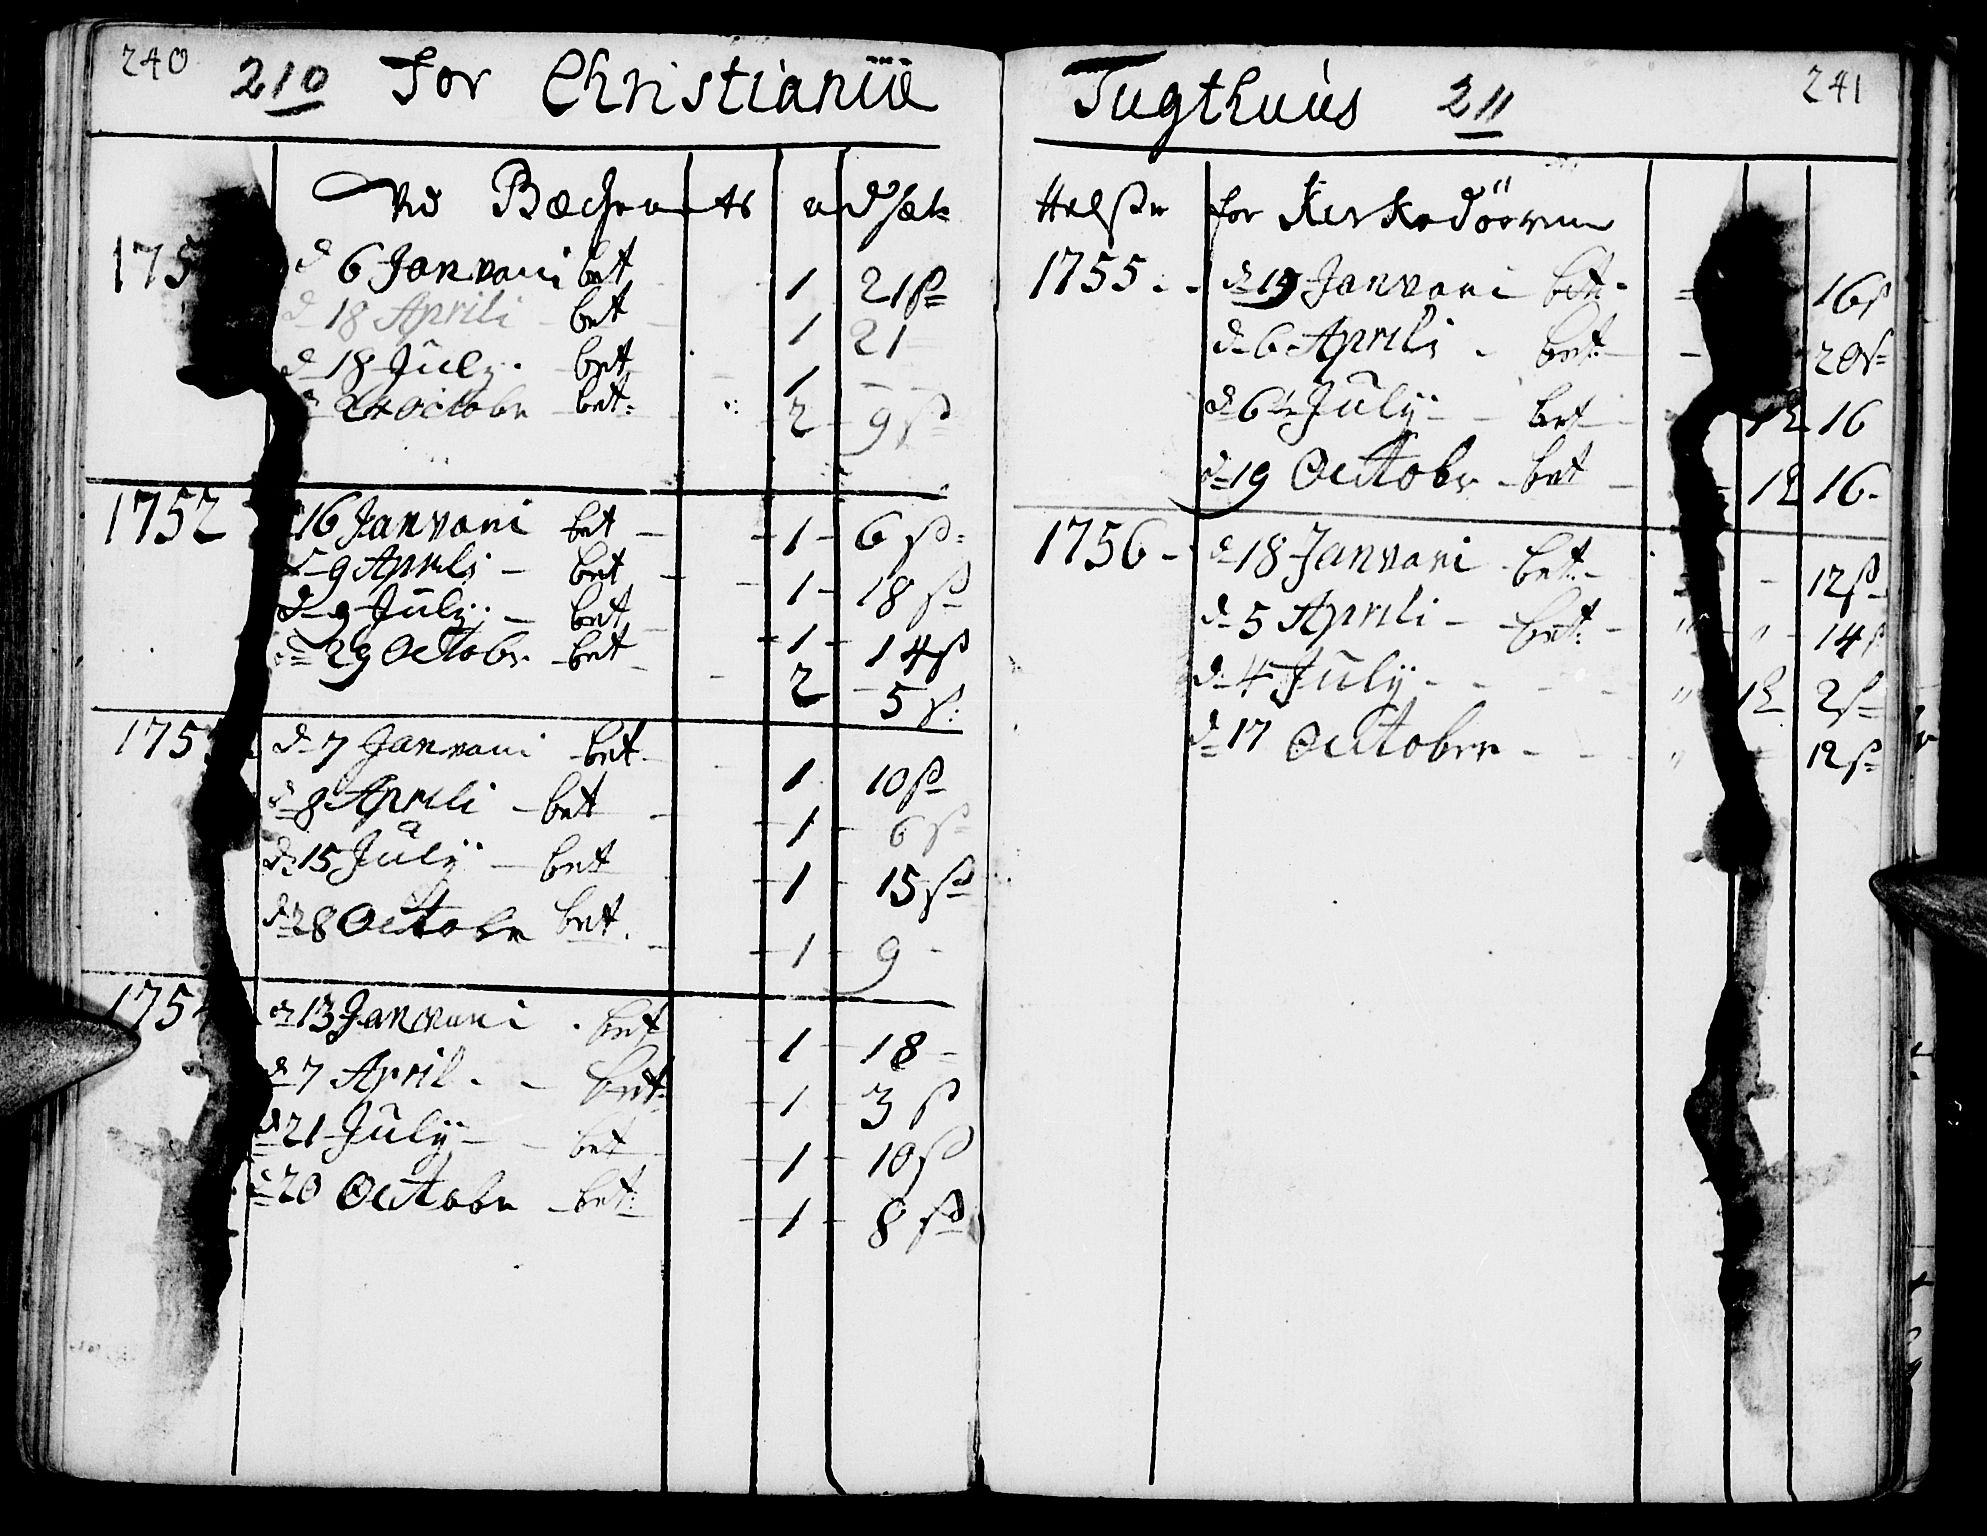 240 210 For Christianiæ
Ved Bæchen
175 d 6 Janvarii bet 1 21ß
d 18 Aprili bet 1 21
d 18 July bet 1 - -
d 24 Octobr bet: 2 9ß
1752 16 Janvarii bet 1 6ß
d 9 Aprili bet 1 18ß
d 9 July bet 1 14ß
d 29 Octobr bet 2 5ß
175 d 7 Janvarii bet 1 10ß
d 8 Aprili bet 1 6ß
d 15 July bet 1 15ß
d 28 Octobr bet 1 9
1754 d 13 Janvarii bet 1 18
d 7 April bet 1 3ß
d 21 July bet 1 10ß
d 20 Octobr bet: 1 8ß
Tugthuus 211 241
for Kirkedörren
1755 d 19 Janvarii bet 16ß
d 6 Aprili bet 20ß
d 6 July bet 12 16
d 19 Octobr bet 12 16
1756 d 18 Janvari bet 12ß
d 5 Aprili bet: 14ß
d 4 July 12 2ß
d 17 October 12ß